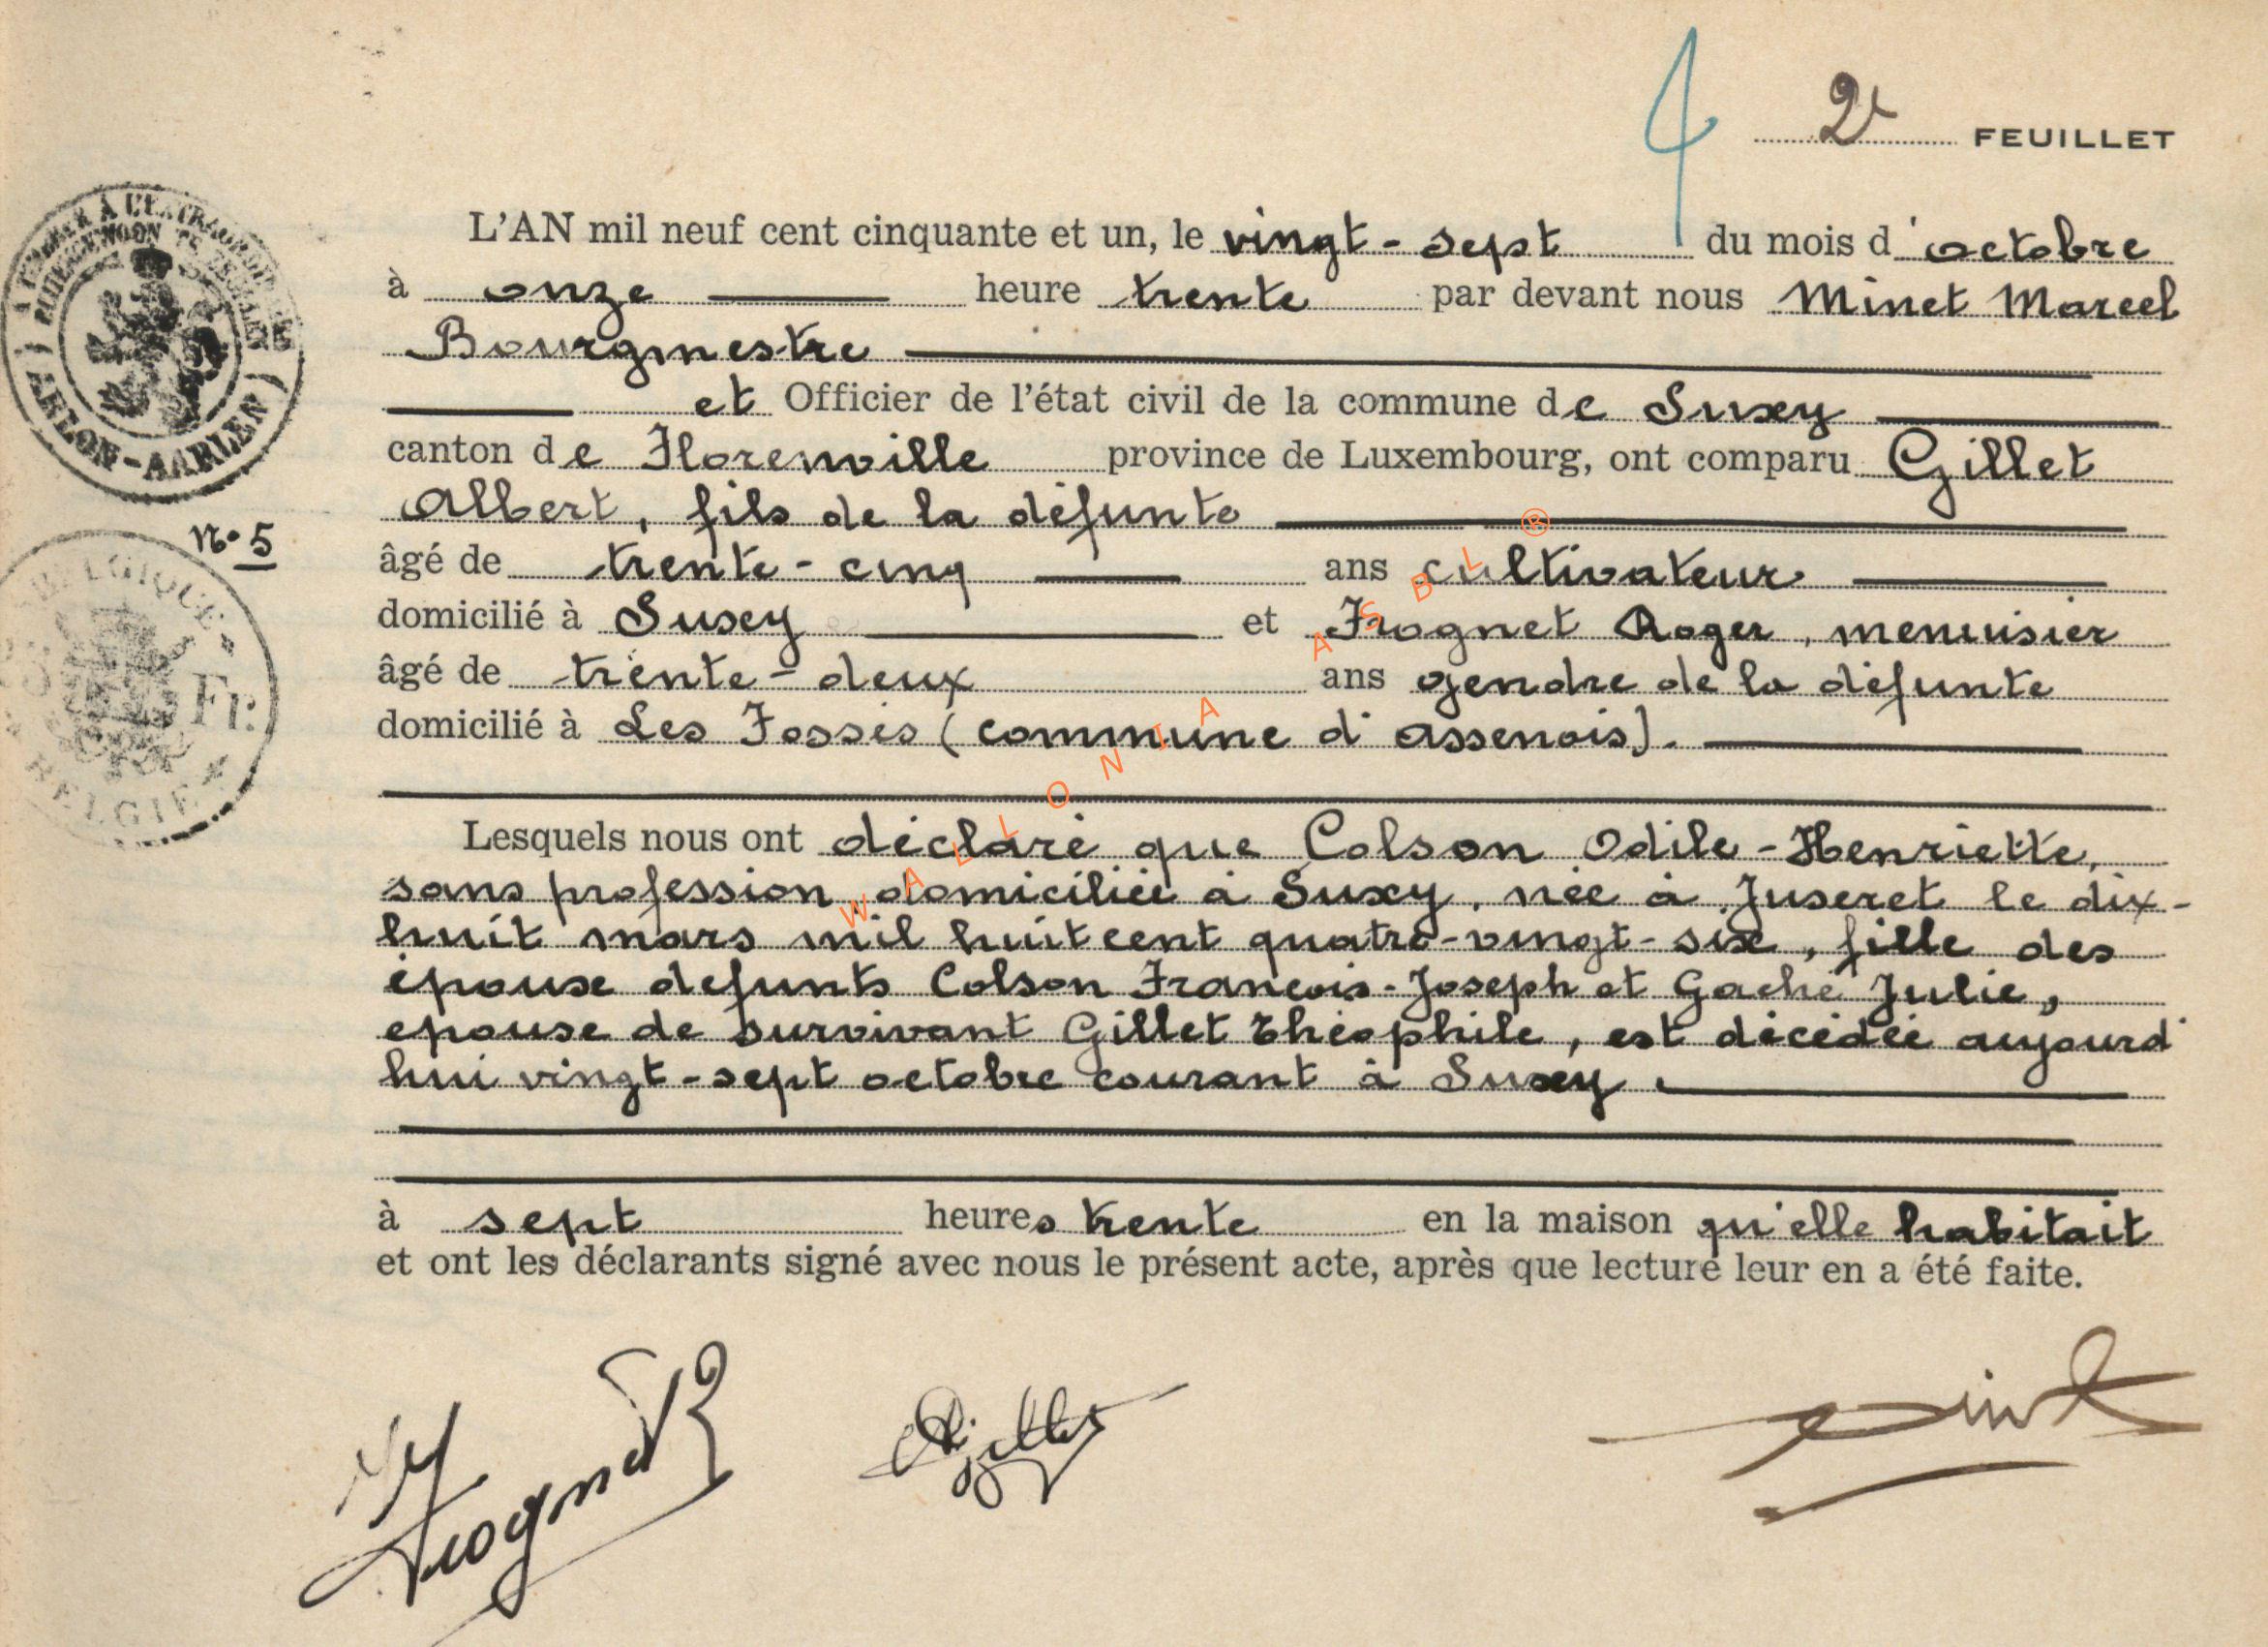 4 2e FEUILLET
L'AN mil neuf cent cinquante et un, le vingt-sept du mois d'octobre
à onze heure trente par devant nous Minet Marcel
Bourgmestre
et Officier de l'état civil de la commune de Suxy
canton de Florenville province de Luxembourg, ont comparu Gillet
Albert, fils de la défunte
N° 5
âgé de trente-cinq ans cultivateur
domicilié à Suxey et Frognet Roger, menuisier
âgé de trente-deux ans gendre de la défunte
domicilié à Les Fossés (commune d'assenois).
Lesquels nous ont déclaré que Colson Odile-Henriette,
sans profession, domiciliée à Suxy, née à Juseret le dix-
huit mars mil huit cent quatre-vingt-six, fille des
épouse defunts Colson Francois-Joseph et Gaché Julie,
epouse de survivant Gillet Théophile, est décédée aujourd'
hui vingt-sept octobre courant à Suxy.
à sept heures trente en la maison qu'elle habitait
et ont les déclarants signé avec nous le présent acte, après que lecture leur en a été faite.
ARLON-AARLEN
BELGIQUE
Fr.
BELGIE
WALLONIA ASBL ®
Frognet R
A Gillet
Minet